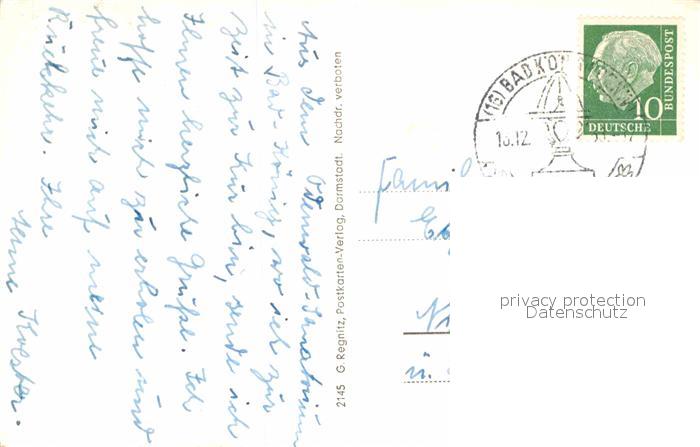 Aus dem Odenwald-Sanatorium
in Bad-König, wo ich zur
Zeit zur Kur bin, sende ich
Ihnen herzliche Grüße. Ich
hoffe mich zu erholen und
freue mich auf meine
Rückkehr. Ihre
Anne Koester.
2145 G. Regnitz, Postkarten-Verlag, Darmstadt. Nachdr. verboten
(16) BAD KÖNIG
13.12.
10
DEUTSCHE
BUNDESPOST
Famil
privacy protection
Datenschutz
ü.